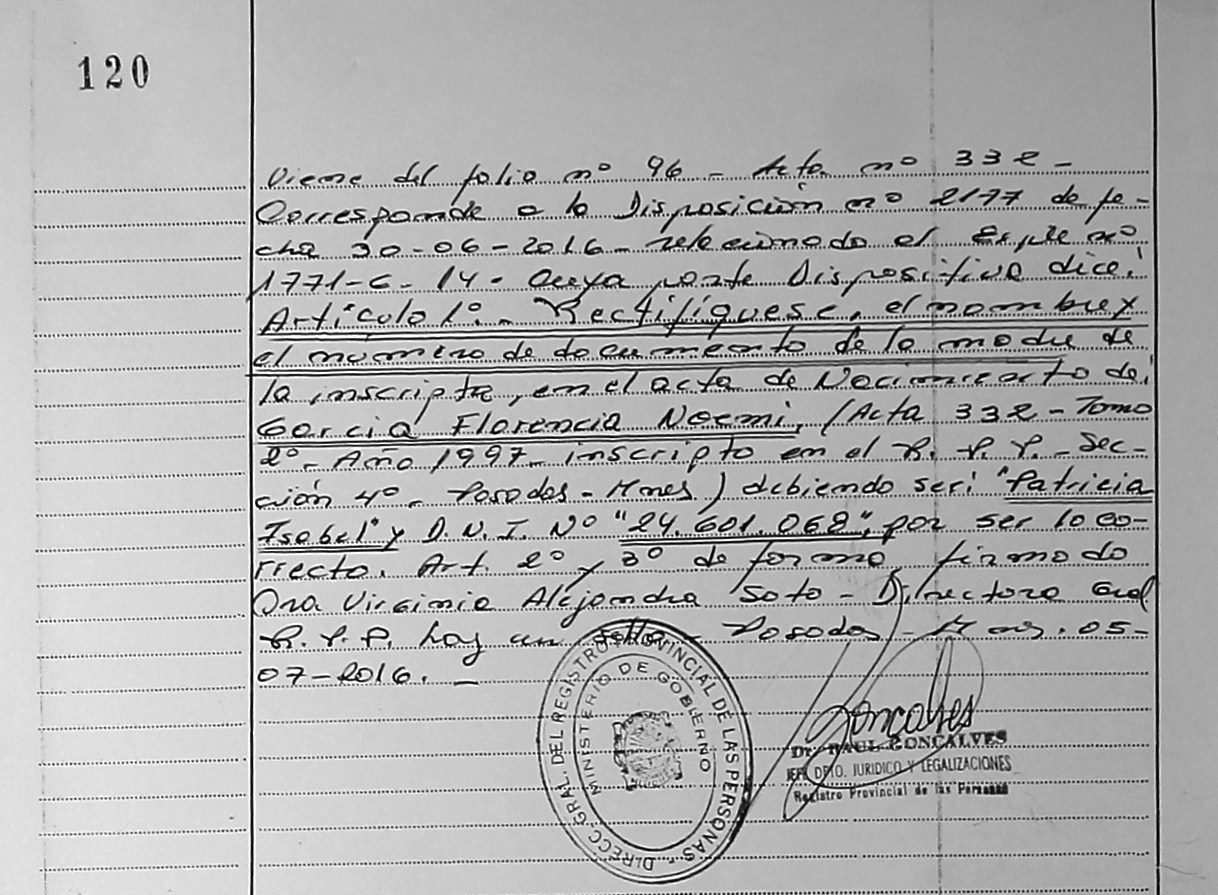 120
Viene del folio nº 96 - Acta nº 332 -
Corresponde a la Disposición nº 2177 de fe-
cha 30-06-2016 - relacionado el Expte nº
1771-G-14 - Cuya parte Dispositiva dice:
Artículo 1º.- Rectifíquese, el nombre y
el número de documento de la madre de
la inscripta, en el acta de Nacimiento de:
García Florencia Noemi, (Acta 332 - Tomo
2º - Año 1997 - inscripto en el R. P. P. - Sec-
ción 4º - Posadas - Mnes) debiendo ser: "Patricia
Isabel" y D.N.I. Nº "24.601.068", por ser lo co-
rrecto. Art. 2º y 3º de forma, firmado
Dra Virginia Alejandra Soto - Directora Gral
R. P. P. hay un sello - Posadas - Mnes. 05-
07-2016. -
DIRECC. GRAL. DEL REGISTRO PROVINCIAL DE LAS PERSONAS -
MINISTERIO DE GOBIERNO
Goncalves
Dr. RAUL GONCALVES
JEFE DPTO. JURIDICO Y LEGALIZACIONES
Registro Provincial de las Personas